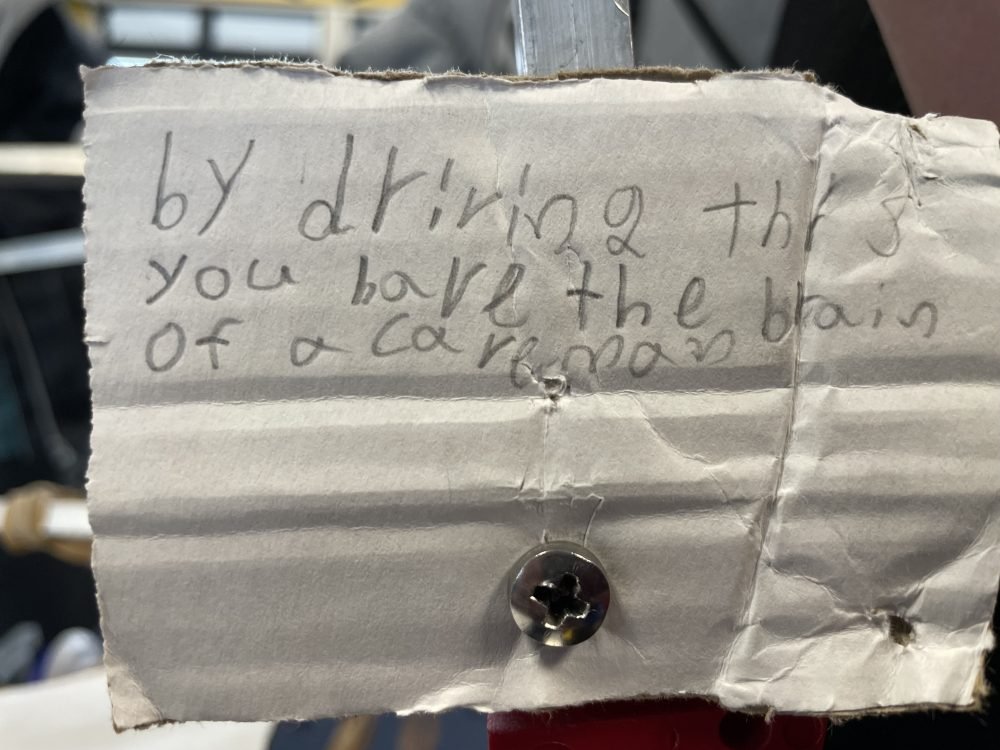 by driving this
you have the brain
of a caveman